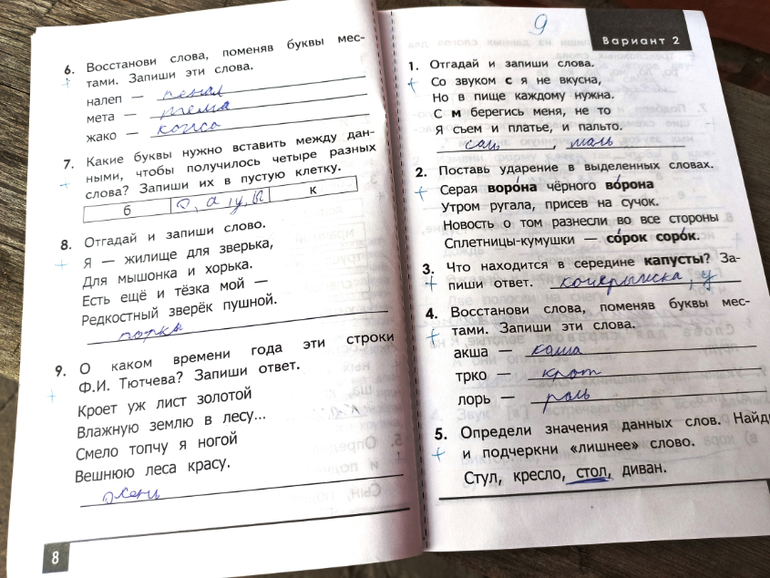 6. Восстанови слова, поменяв буквы мес-
тами. Запиши эти слова.
налеп — пенал
мета — тема
жако —
7. Какие буквы нужно вставить между дан-
ными, чтобы получилось четыре разных
слова? Запиши их в пустую клетку.
б о, а, у, ы к
8. Отгадай и запиши слово.
Я — жилище для зверька,
Для мышонка и хорька.
Есть ещё и тёзка мой —
Редкостный зверёк пушной.
норка
9. О каком времени года эти строки
Ф.И. Тютчева? Запиши ответ.
Кроет уж лист золотой
Влажную землю в лесу...
Смело топчу я ногой
Вешнюю леса красу.
осень
8
9
Вариант 2
1. Отгадай и запиши слова.
Со звуком с я не вкусна,
Но в пище каждому нужна.
С м берегись меня, не то
Я съем и платье, и пальто.
соль, моль
2. Поставь ударение в выделенных словах.
Серая воро́на чёрного во́рона
Утром ругала, присев на сучок.
Новость о том разнесли во все стороны
Сплетницы-кумушки — со́рок соро́к.
3. Что находится в середине капусты? За-
пиши ответ. кочерыжка, у
4. Восстанови слова, поменяв буквы мес-
тами. Запиши эти слова.
акша — каша
трко — крот
лорь — роль
5. Определи значения данных слов. Найди
и подчеркни «лишнее» слово.
Стул, кресло, стол, диван.